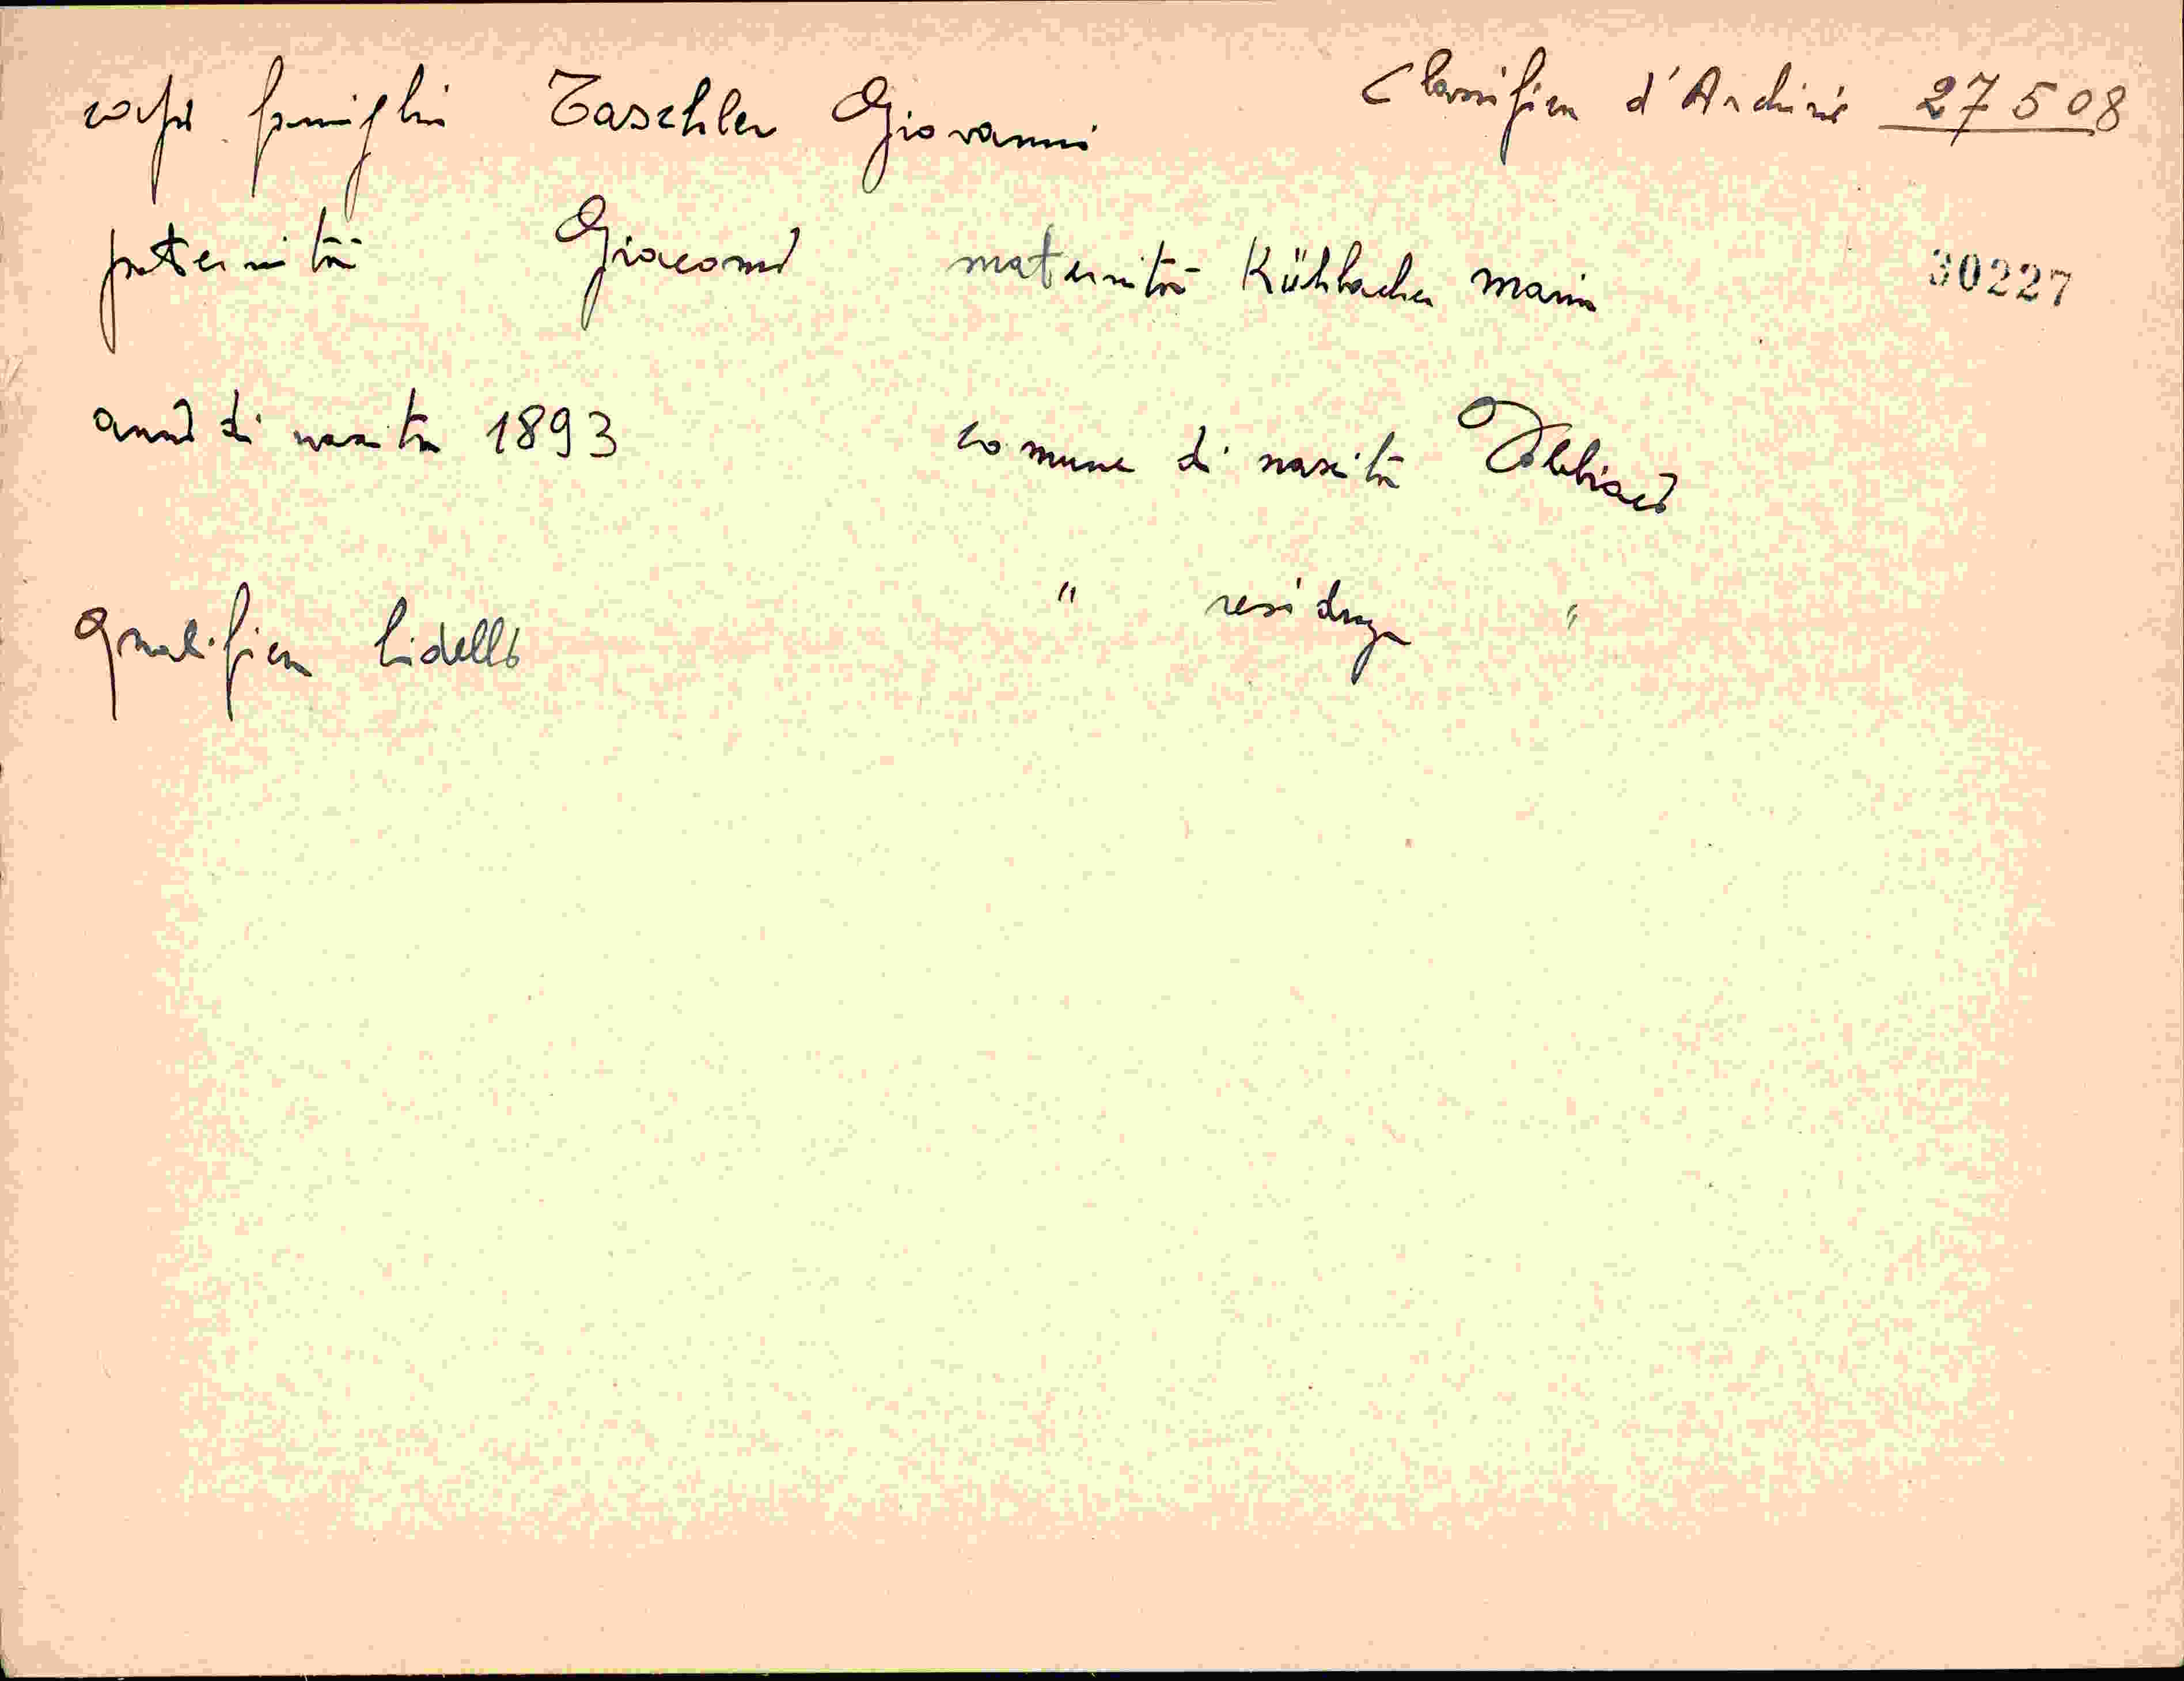 capo famiglia Taschler Giovanni Classifica d'Archivio 27508
paternità Giacomo maternità Kühbacher Maria 30227
anno di nascita 1893 comune di nascita Dobbiaco
" residenza "
Qualifica bidello